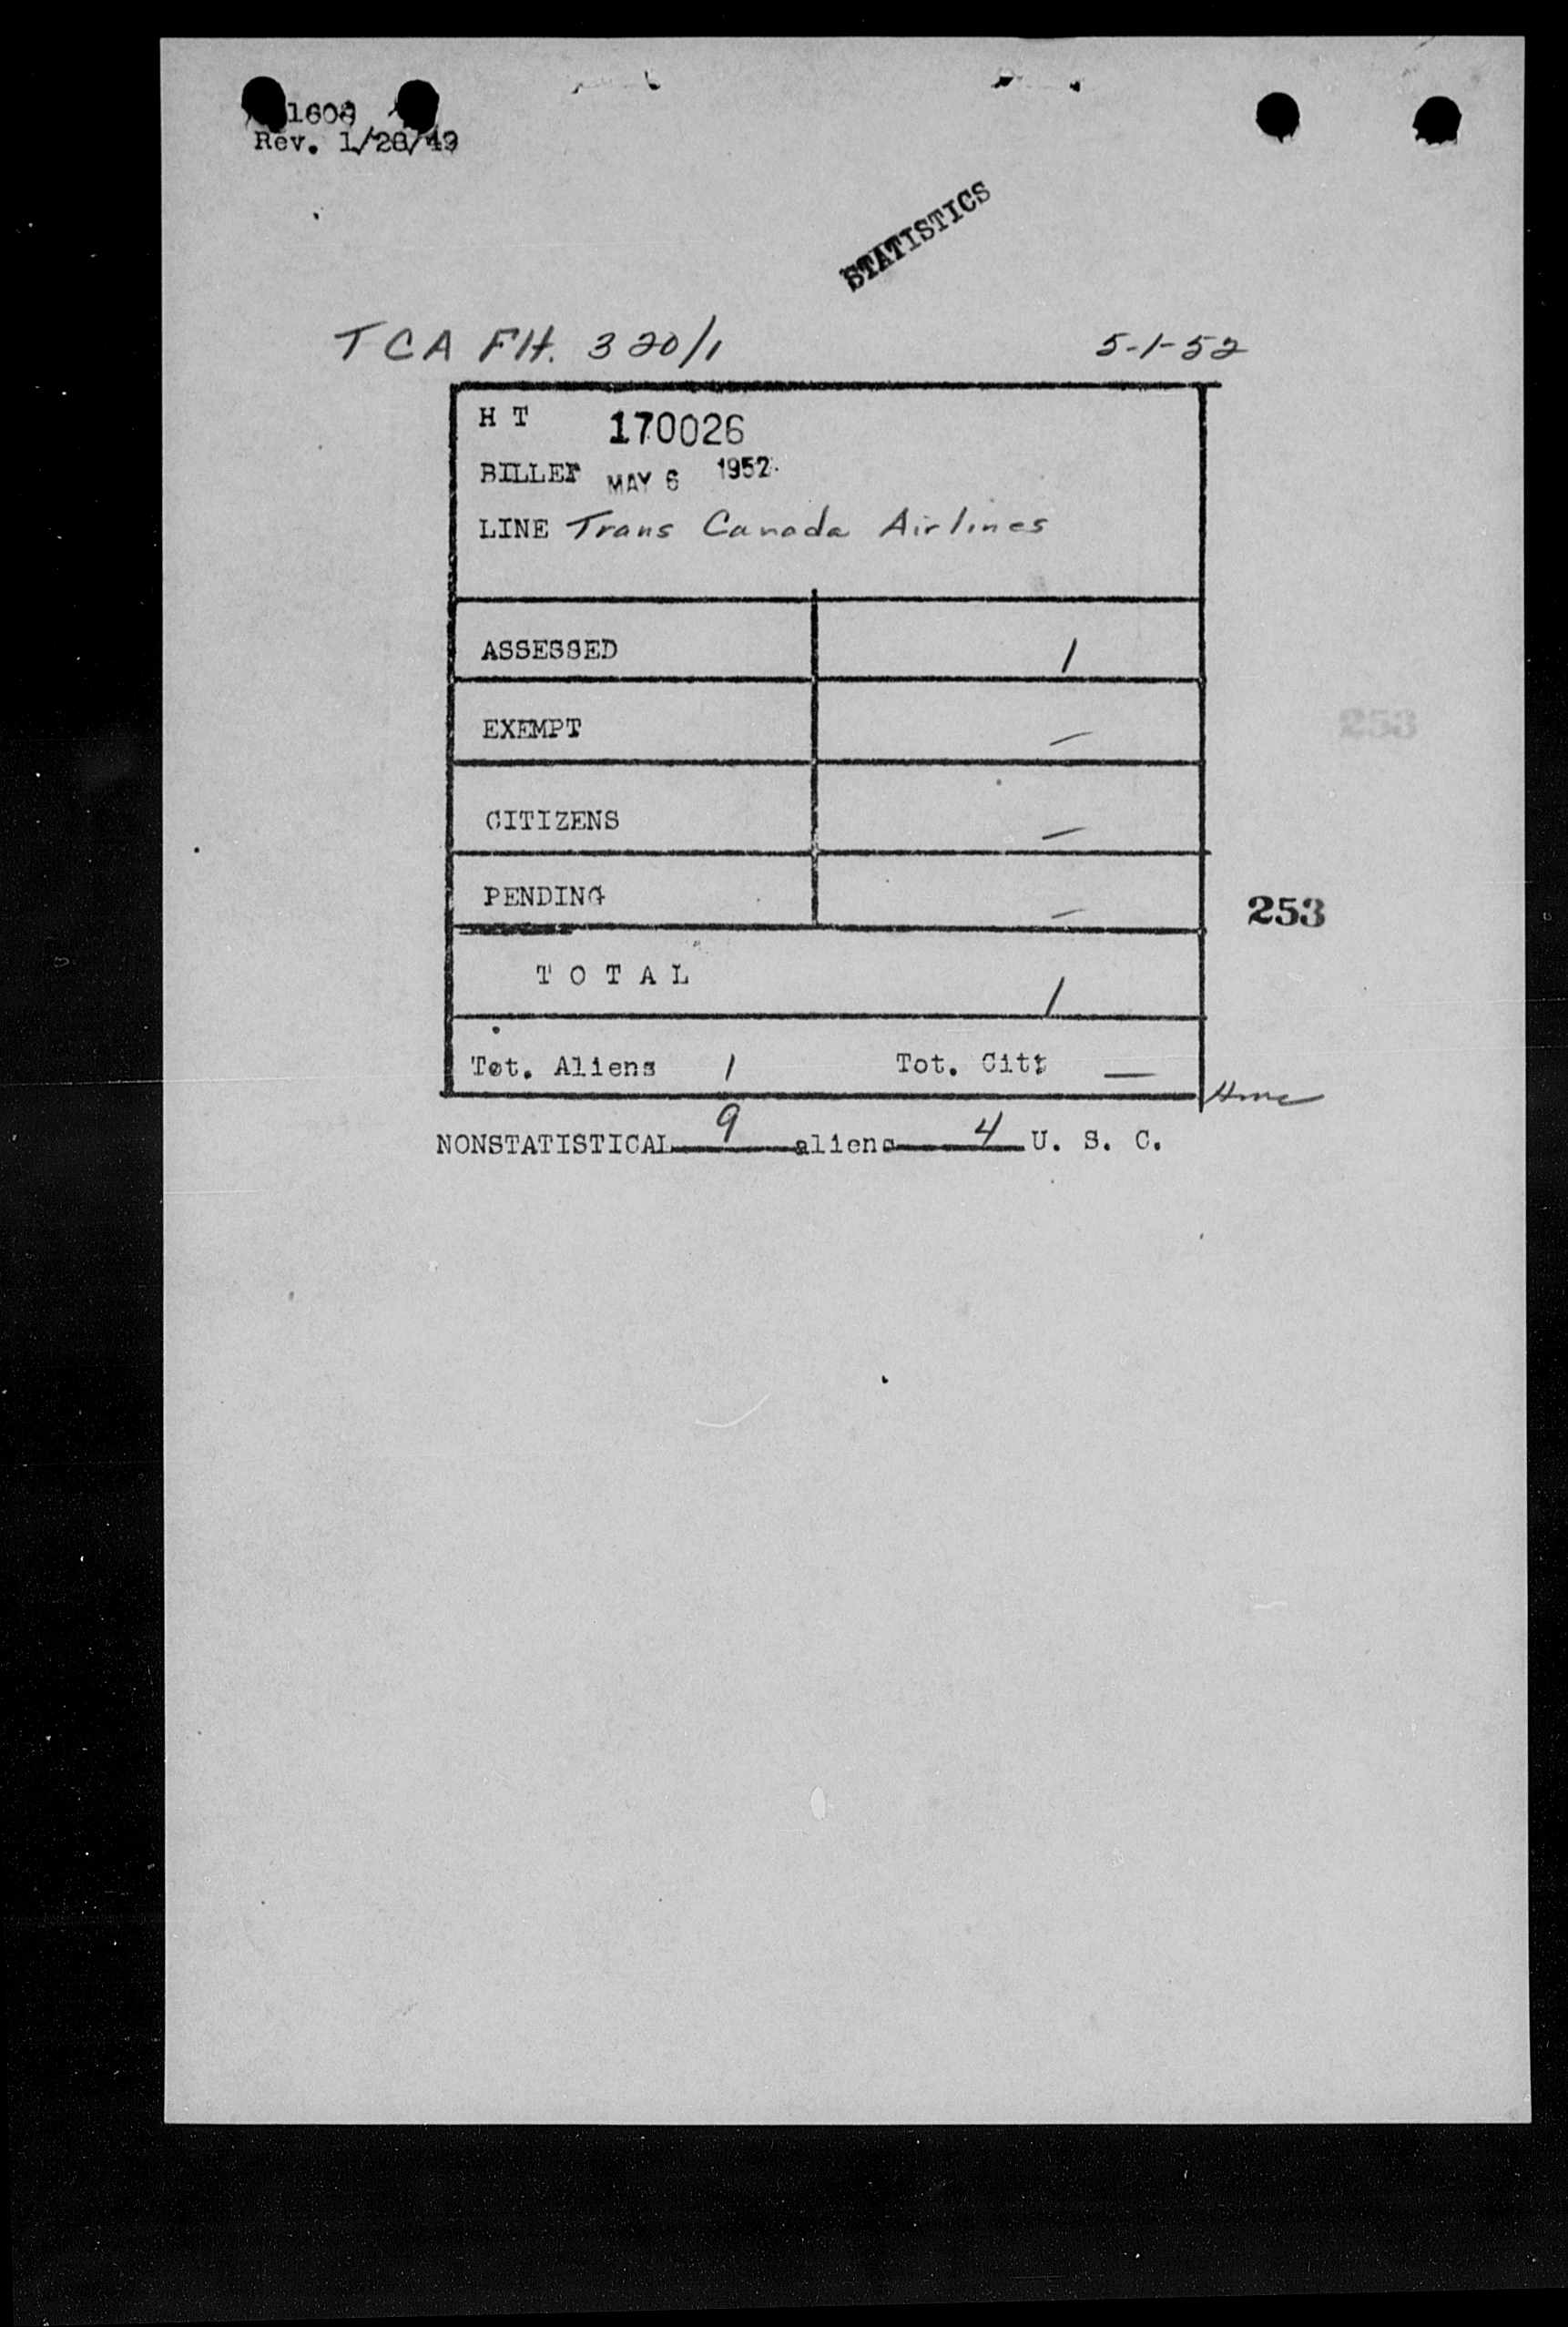 1608
Rev. 1/28/49
STATISTICS
TCA Flt. 320/1 5-1-52
H T 170026
BILLED MAY 6 1952
LINE Trans Canada Airlines
ASSESSED 1
EXEMPT —
253
CITIZENS —
PENDING —
253
T O T A L 1
Tot. Aliens 1 Tot. Citz —
NONSTATISTICAL 9 aliens 4 U. S. C.